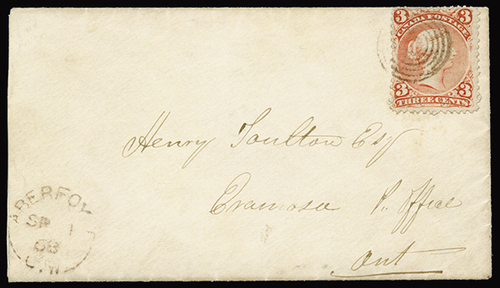 3 3
CANADA POSTAGE
3 3
THREE CENTS
Henry Toulton Esq
Eramosa P. Office
Ont
ABERFOY
SP 1
68
C.W